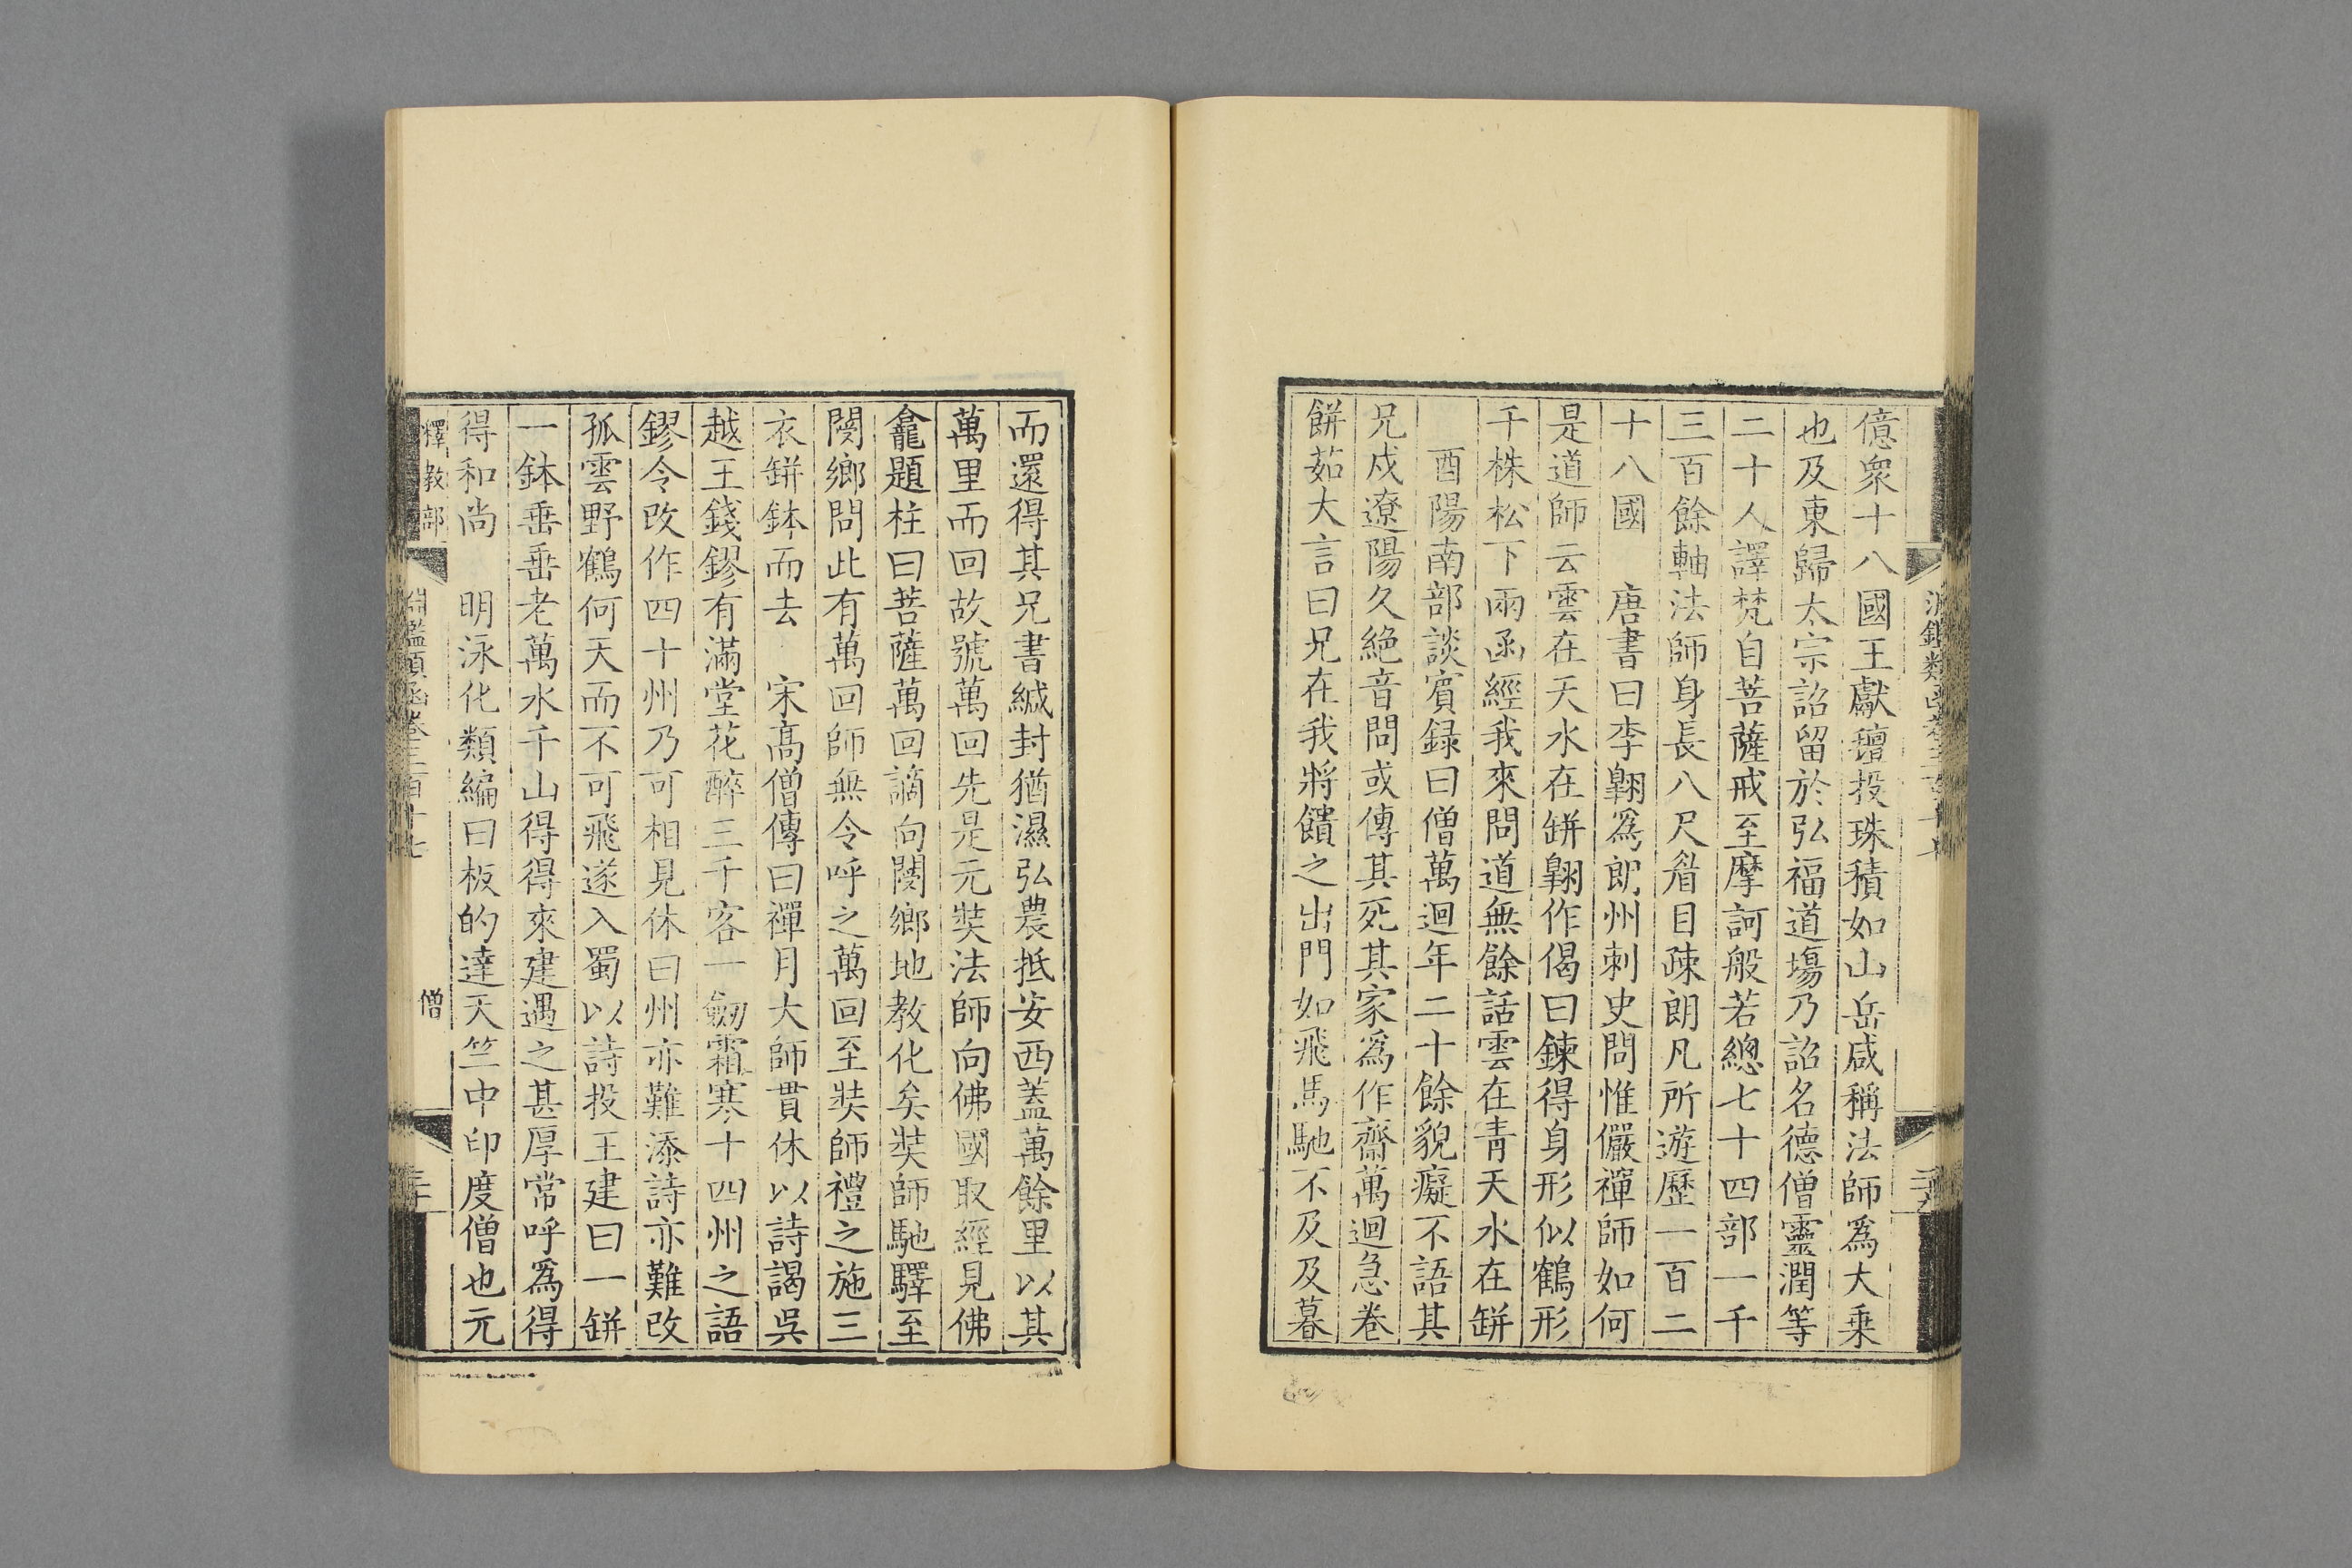 億衆十八國王獻璮投珠積如山岳咸稱法師爲大乗
也及東歸太宗詔留於弘福道塲乃詔名德僧靈潤等
二十人譯梵自菩薩戒至摩訶般若總七十四部一千
三百餘軸法師身長八尺眉目疎朗凡所遊歷一百二
十八國　唐書曰李翺爲朗州刺史問惟儼禪師如何
是道師云雲在天水在缾翺作偈曰鍊得身形似鶴形
千株松下兩函經我來問道無餘話雲在青天水在缾
酉陽南部談賓録曰僧萬迴年二十餘貌癡不語其
兄戍遼陽久絶音問或傳其死其家爲作齋萬迴急卷
餅茹大言曰兄在我將饋之出門如飛馬馳不及及暮
而還得其兄書緘封猶濕弘農抵安西蓋萬餘里以其
萬里而回故號萬回先是元奘法師向佛國取經見佛
龕題柱曰菩薩萬回謫向閿鄉地教化矣奘師馳驛至
閿鄉問此有萬回師無令呼之萬回至奘師禮之施三
衣缾鉢而去　宋高僧傳曰禪月大師貫休以詩謁吳
越王錢鏐有滿堂花醉三千客一劒霜寒十四州之語
鏐令改作四十州乃可相見休曰州亦難添詩亦難改
孤雲野鶴何天而不可飛遂入蜀以詩投王建曰一缾
一鉢垂垂老萬水千山得得來建遇之甚厚常呼爲得
得和尚　明泳化類編曰板的達天竺中印度僧也元
釋教部　淵鑑類函卷三百十七　僧　三十